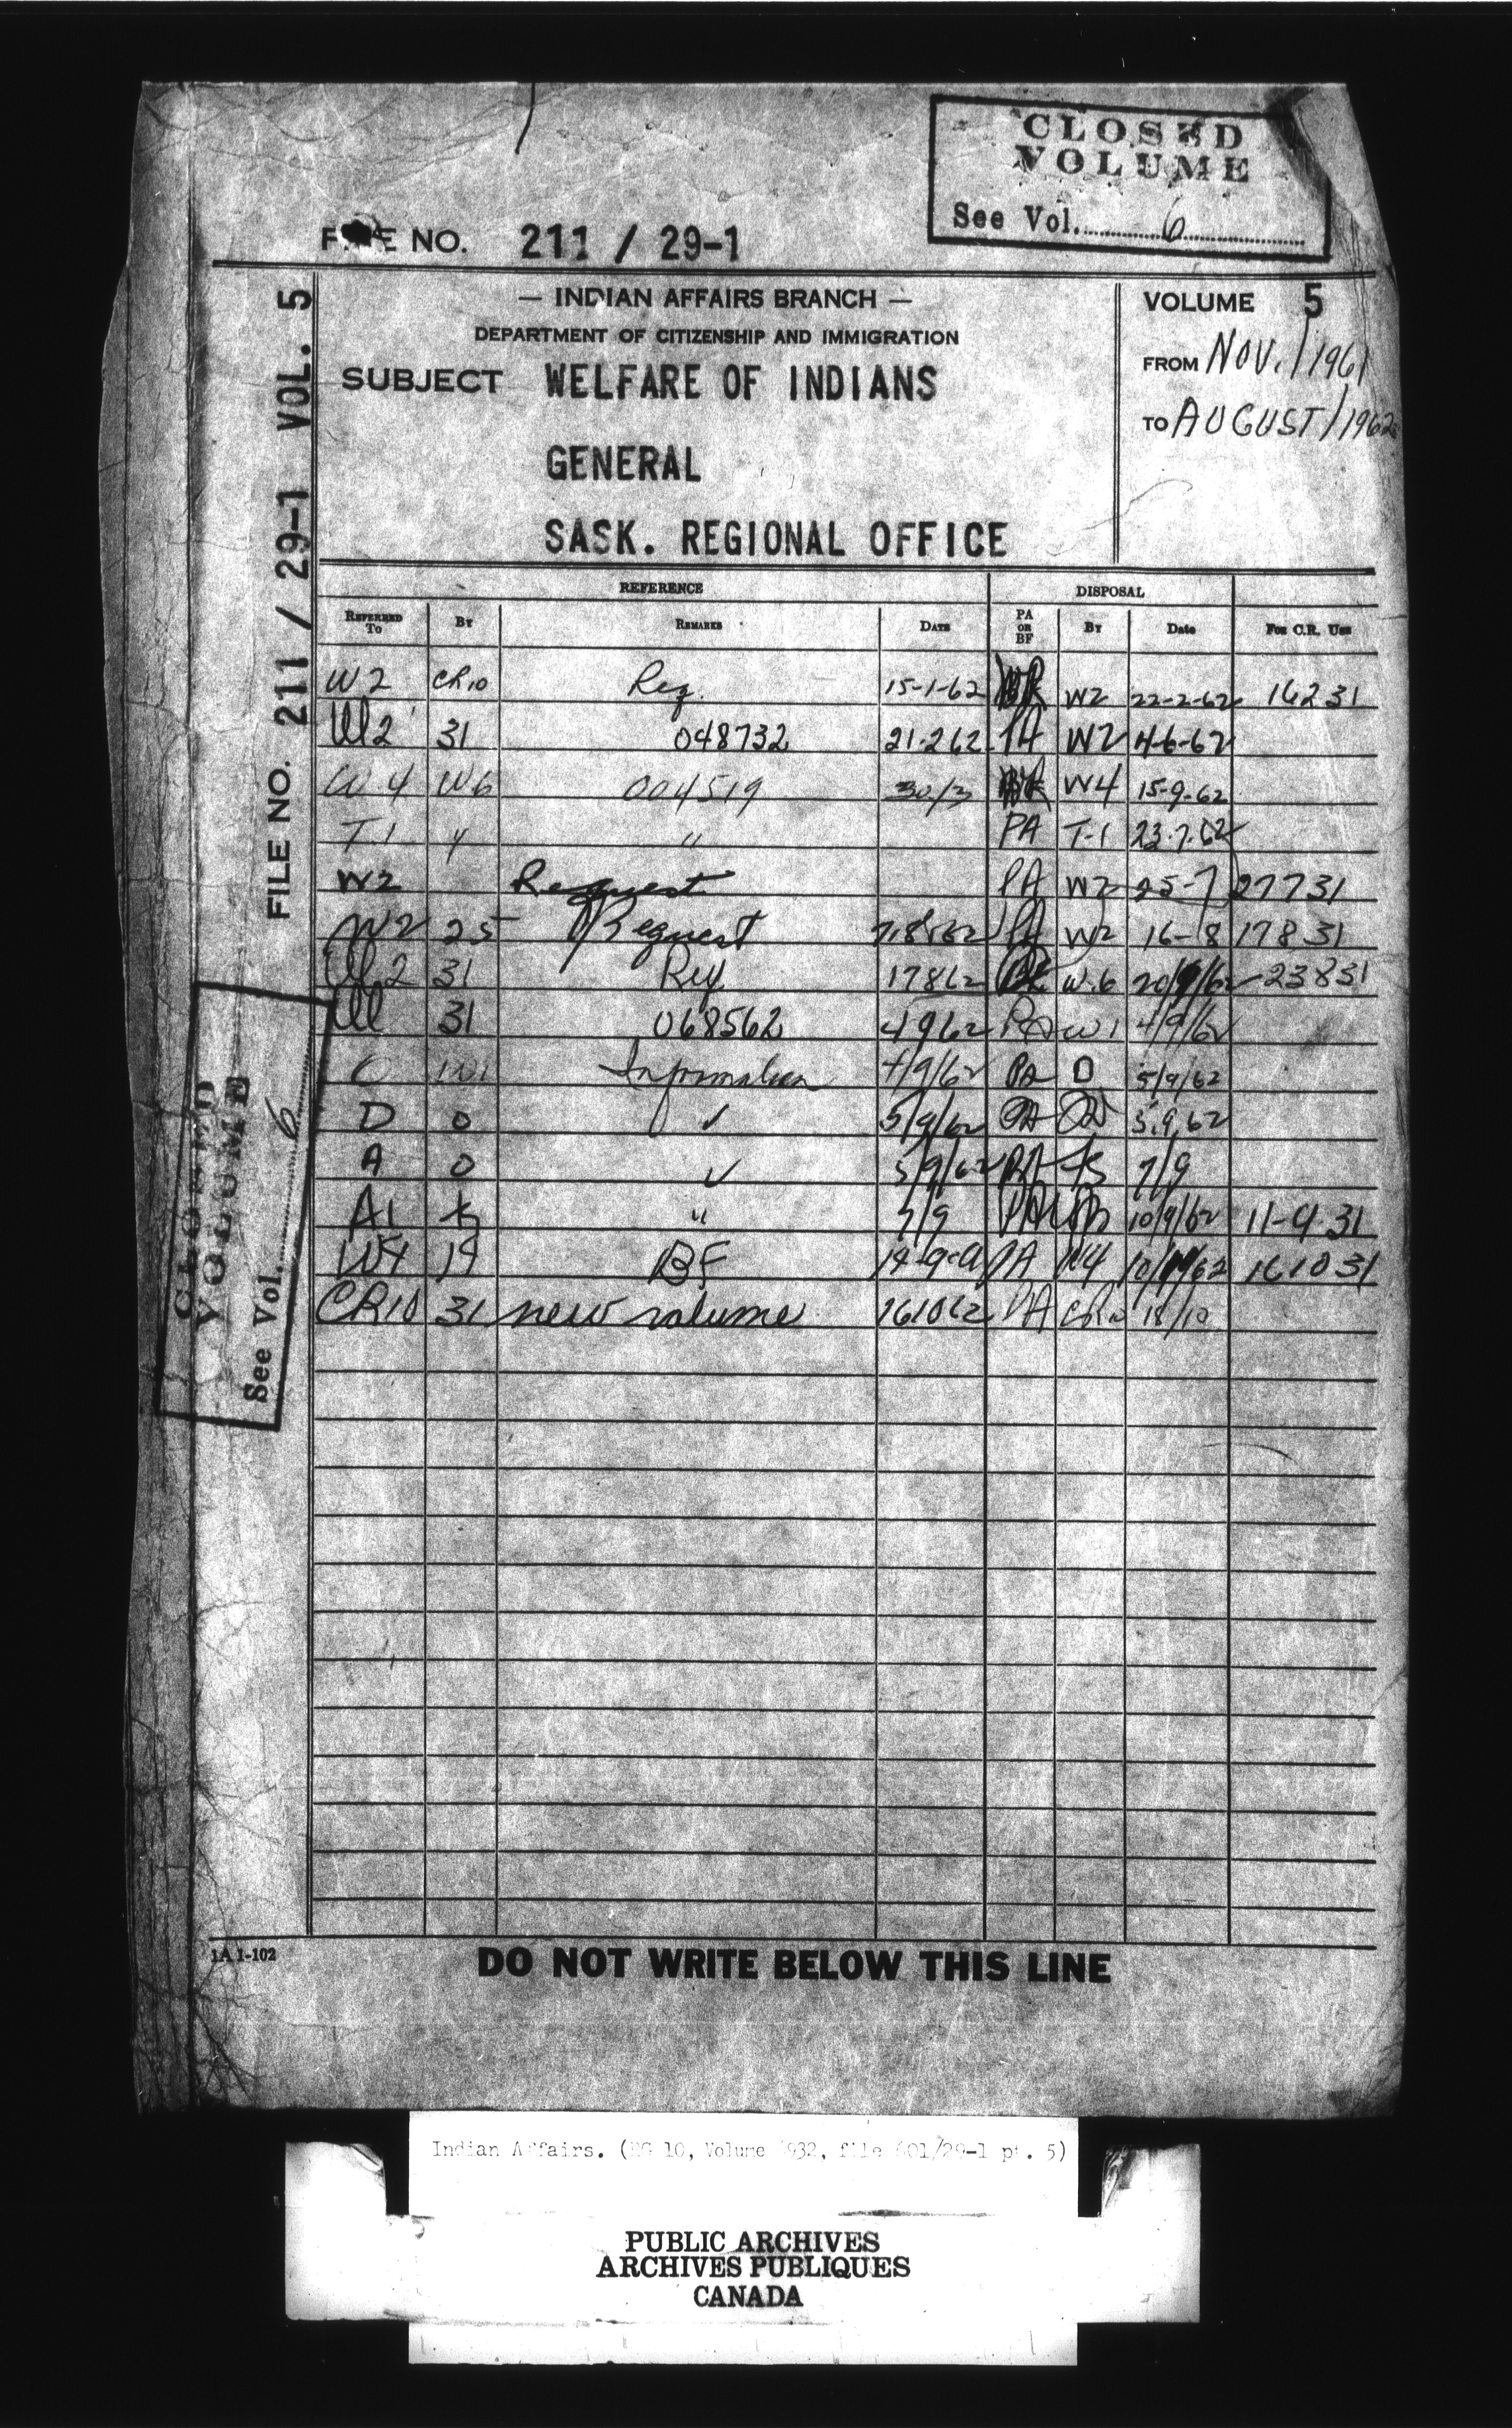 CLOSED
VOLUME
See Vol. 6
FILE NO. 211 / 29-1
— INDIAN AFFAIRS BRANCH —
DEPARTMENT OF CITIZENSHIP AND IMMIGRATION
SUBJECT WELFARE OF INDIANS
GENERAL
SASK. REGIONAL OFFICE
VOLUME 5
FROM NOV./1961
TO AUGUST/1962
FILE NO. 211 / 29-1 VOL. 5
REFERENCE DISPOSAL
REFERRED TO BY REMARKS DATE PA OR BF BY Date FOR C.R. USE
W2 CR10 Req. 15-1-62 W2 22-2-62 16231
W2 31 048732 21-262 PA W2 4-6-62
W4 W6 004519 30/3 W4 15-9-62
T.1 " PA T-1 23.7.62
W2 Request PA W2 25-7 27731
W2 25 Request 7.8.62 PA W2 16-8 17831
W2 31 Req 17862 W.6 20/9/62 23831
W1 31 068562 4962 PA W1 4/9/62
O W1 Information 4/9/62 PA O 5/9/62
D O ✓ 5/9/62 PA 5.9.62
A O ✓ 5/9/62 PA 7/9
A1 " 7/9 PA 10/9/62 11-9.31
W4 19 BF 14-9-62 PA W4 62 161031
CR10 31 new volume 161062 PA CR10 18/10
CLOSED
VOLUME
See Vol. 6
1A 1-102
DO NOT WRITE BELOW THIS LINE
Indian Affairs. (RG 10, Volume 932, file 01/29-1 pt. 5)
PUBLIC ARCHIVES
ARCHIVES PUBLIQUES
CANADA